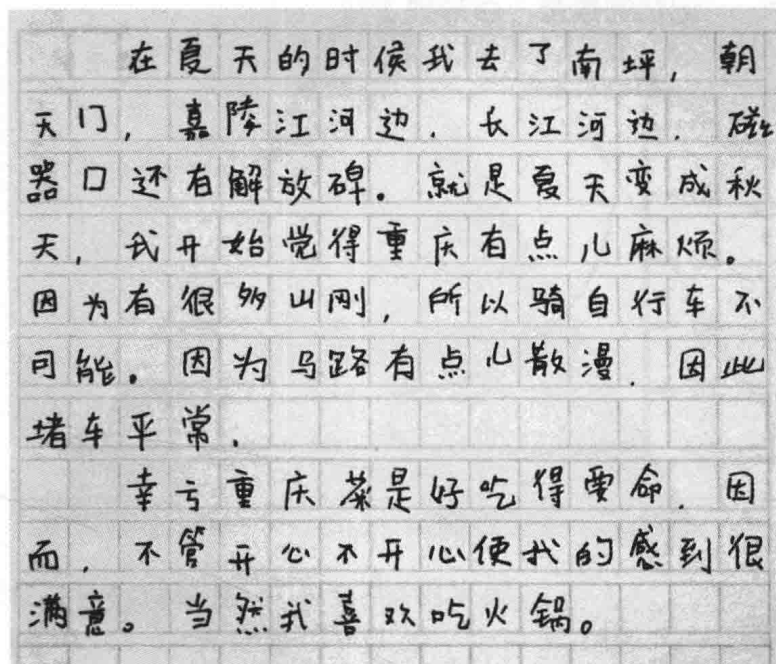 在夏天的时侯我去了南坪，朝
天门，嘉陵江河边．长江河边．磁
器口还有解放碑。就是夏天变成秋
天，我开始觉得重庆有点儿麻烦。
因为有很多山刚，所以骑自行车不
可能。因为马路有点儿散漫．因此
堵车平常．
幸亏重庆菜是好吃得要命．因
而．不管开心不开心使我的感到很
满意。当然我喜欢吃火锅。